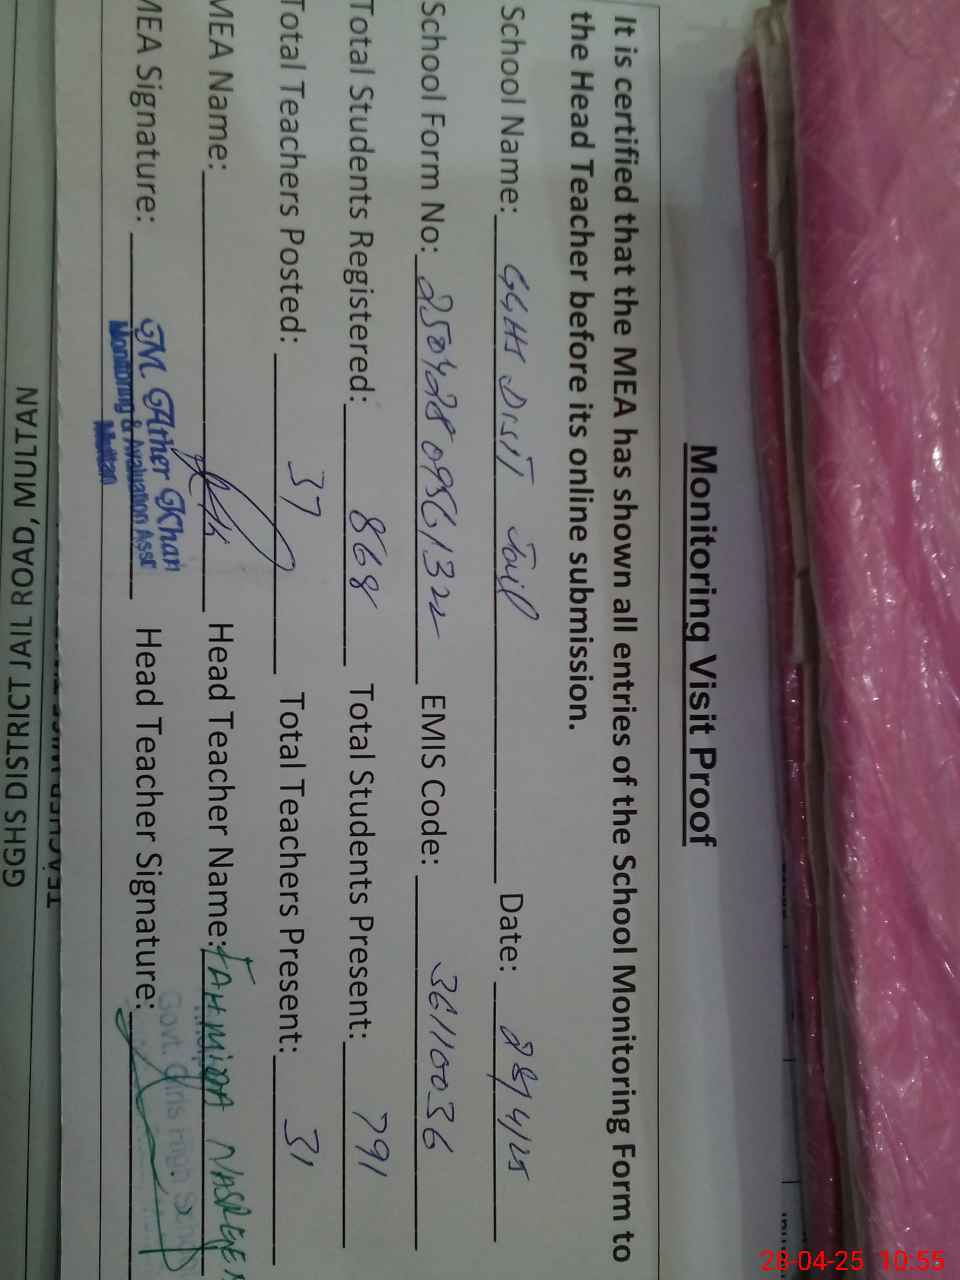 Monitoring Visit Proof
It is certified that the MEA has shown all entries of the School Monitoring Form to
the Head Teacher before its online submission.
School Name: GGHS Distt Jail Date: 28/4/25
School Form No: 25042809561322 EMIS Code: 36110036
Total Students Registered: 868 Total Students Present: 791
Total Teachers Posted: 37 Total Teachers Present: 31
MEA Name: Head Teacher Name: FAHMIDA NASREEN
MEA Signature: M. Ather Khan Head Teacher Signature:
Monitoring & Evaluation Asst
Multan
Govt. Girls High
GGHS DISTRICT JAIL ROAD, MULTAN
28-04-25 10:55